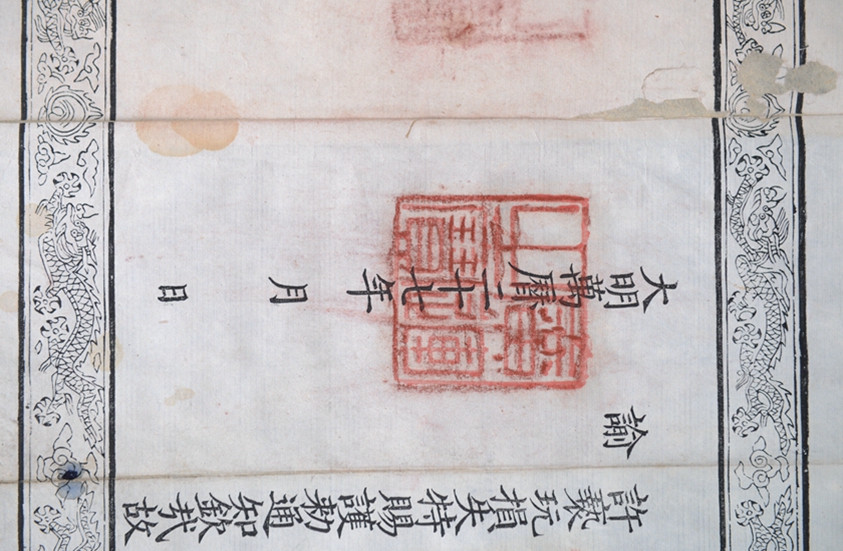 許褻玩損失特賜護勅通知欽哉故
諭
大明萬曆二十七年 月 日